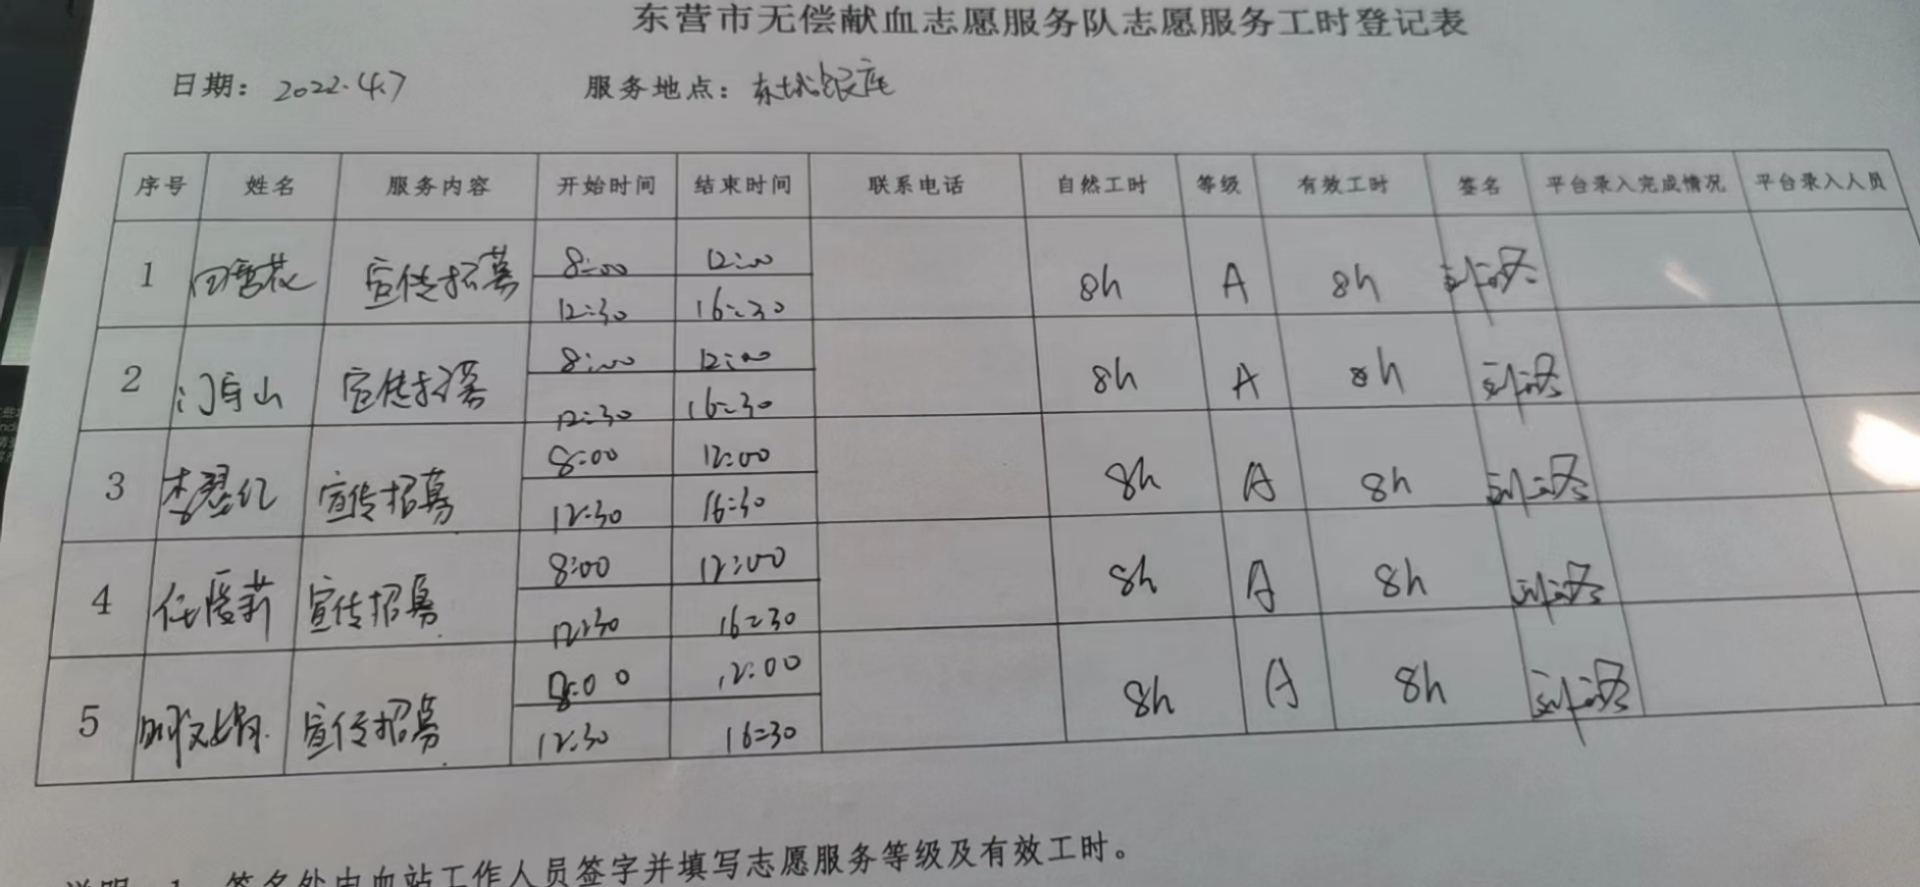 东营市无偿献血志愿服务队志愿服务工时登记表
日期：2022.4.7 服务地点：东城银座
序号 姓名 服务内容 开始时间 结束时间 联系电话 自然工时 等级 有效工时 签名 平台录入完成情况 平台录入人员
1 田雪花 宣传招募 8:00 12:00 8h A 8h
12:30 16:30
2 宣传招募 8:00 12:00 8h A 8h
12:30 16:30
3 宣传招募 8:00 12:00 8h A 8h
12:30 16:30
4 任爱莉 宣传招募 8:00 12:00 8h A 8h
12:30 16:30
5 宣传招募 8:00 12:00 8h A 8h
12:30 16:30
说明：1、签名处由血站工作人员签字并填写志愿服务等级及有效工时。